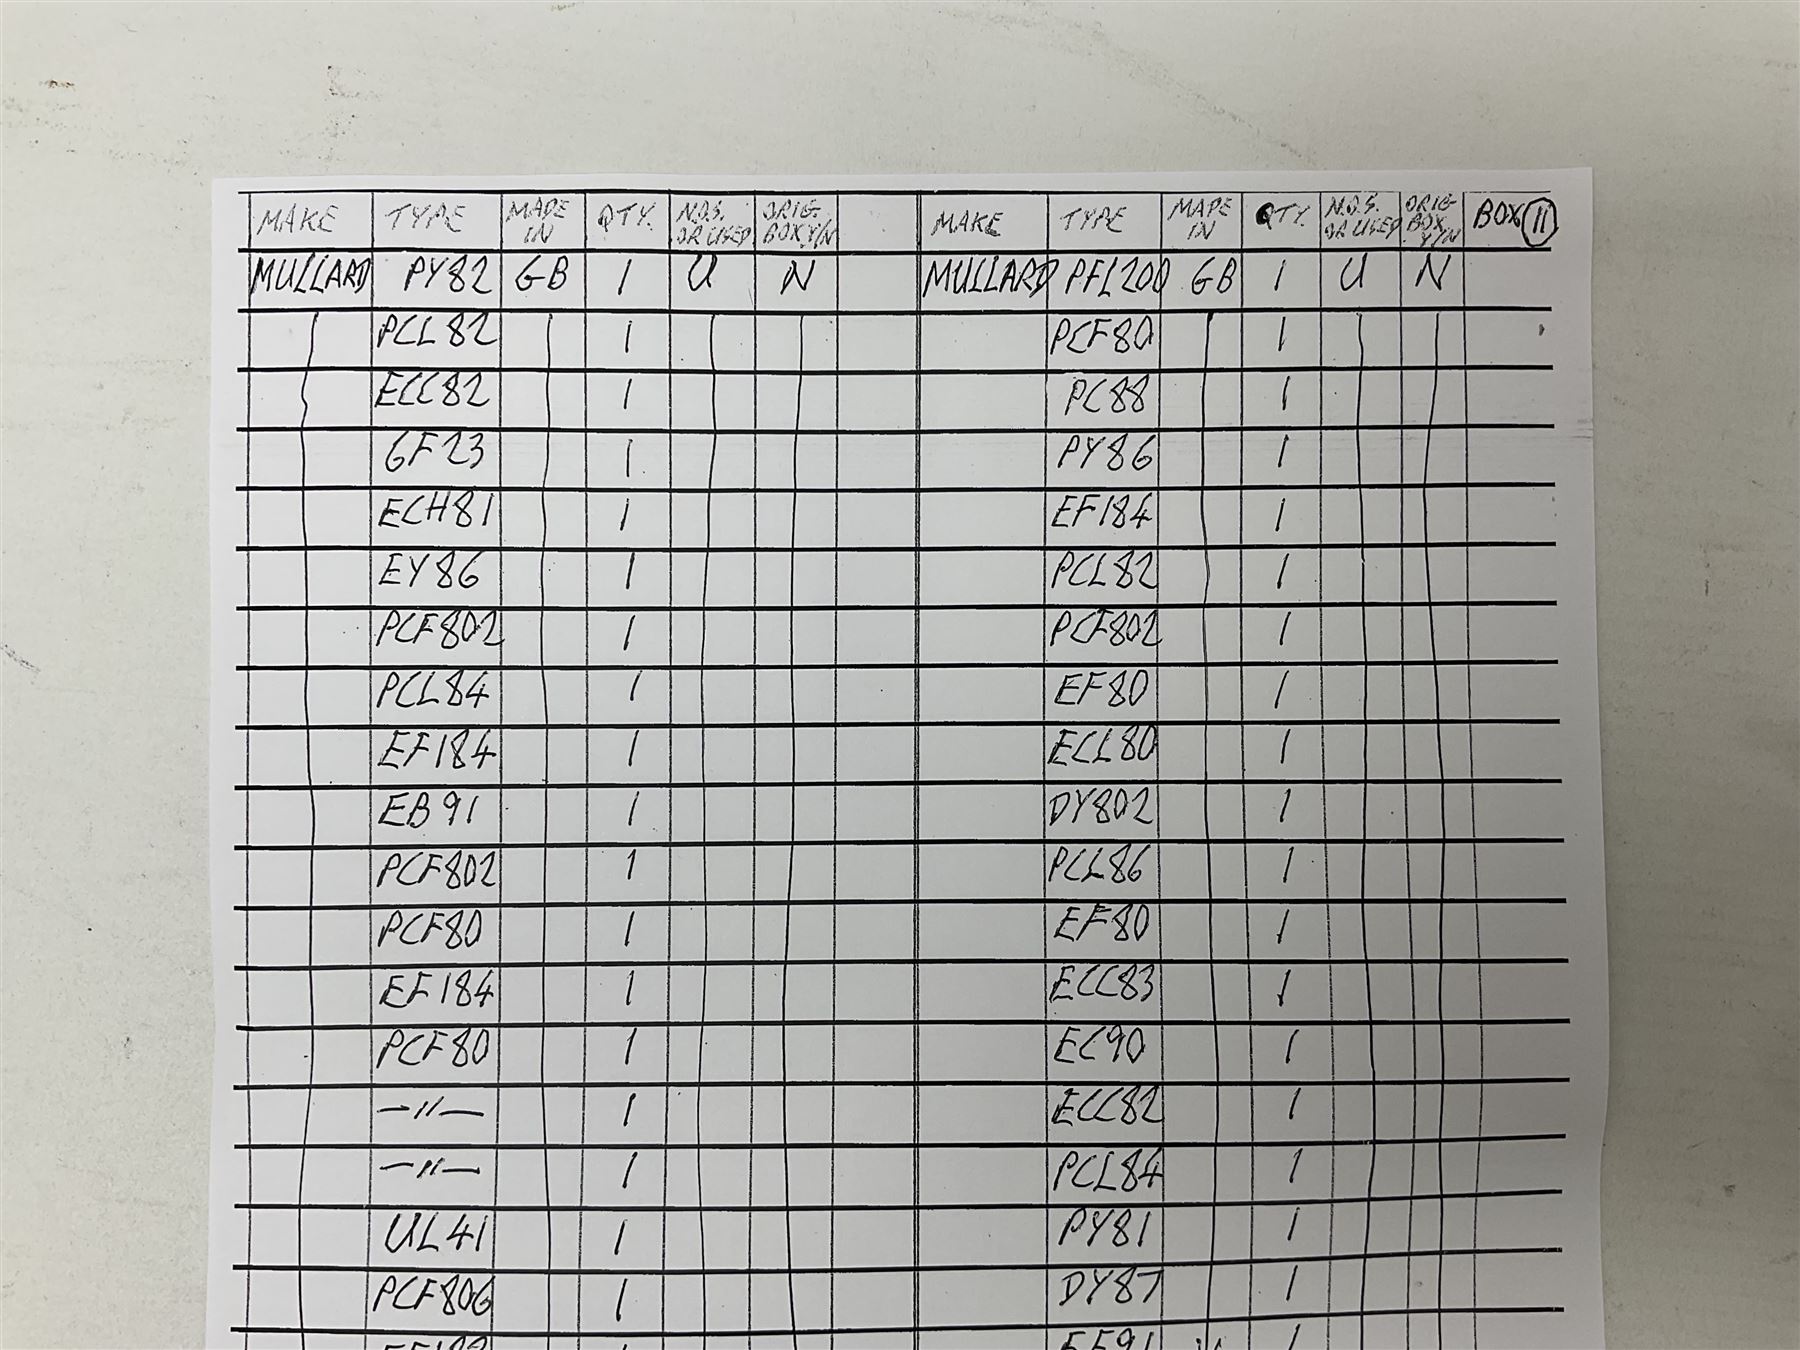 MAKE TYPE MADE IN QTY. N.O.S. OR USED ORIG. BOX Y/N MAKE TYPE MADE IN QTY. N.O.S. OR USED ORIG. BOX Y/N BOX 11
MULLARD PY82 GB 1 U N MULLARD PFL200 GB 1 U N
PCL82 1 PCF80 1
ECC82 1 PC88 1
6F23 1 PY86 1
ECH81 1 EF184 1
EY86 1 PCL82 1
PCF802 1 PCF802 1
PCL84 1 EF80 1
EF184 1 ECL80 1
EB91 1 DY802 1
PCF802 1 PCL86 1
PCF80 1 EF80 1
EF184 1 ECC83 1
PCF80 1 EC90 1
—"— 1 ECC82 1
—"— 1 PCL84 1
UL41 1 PY81 1
PCF806 1 DY87 1
EF91 1